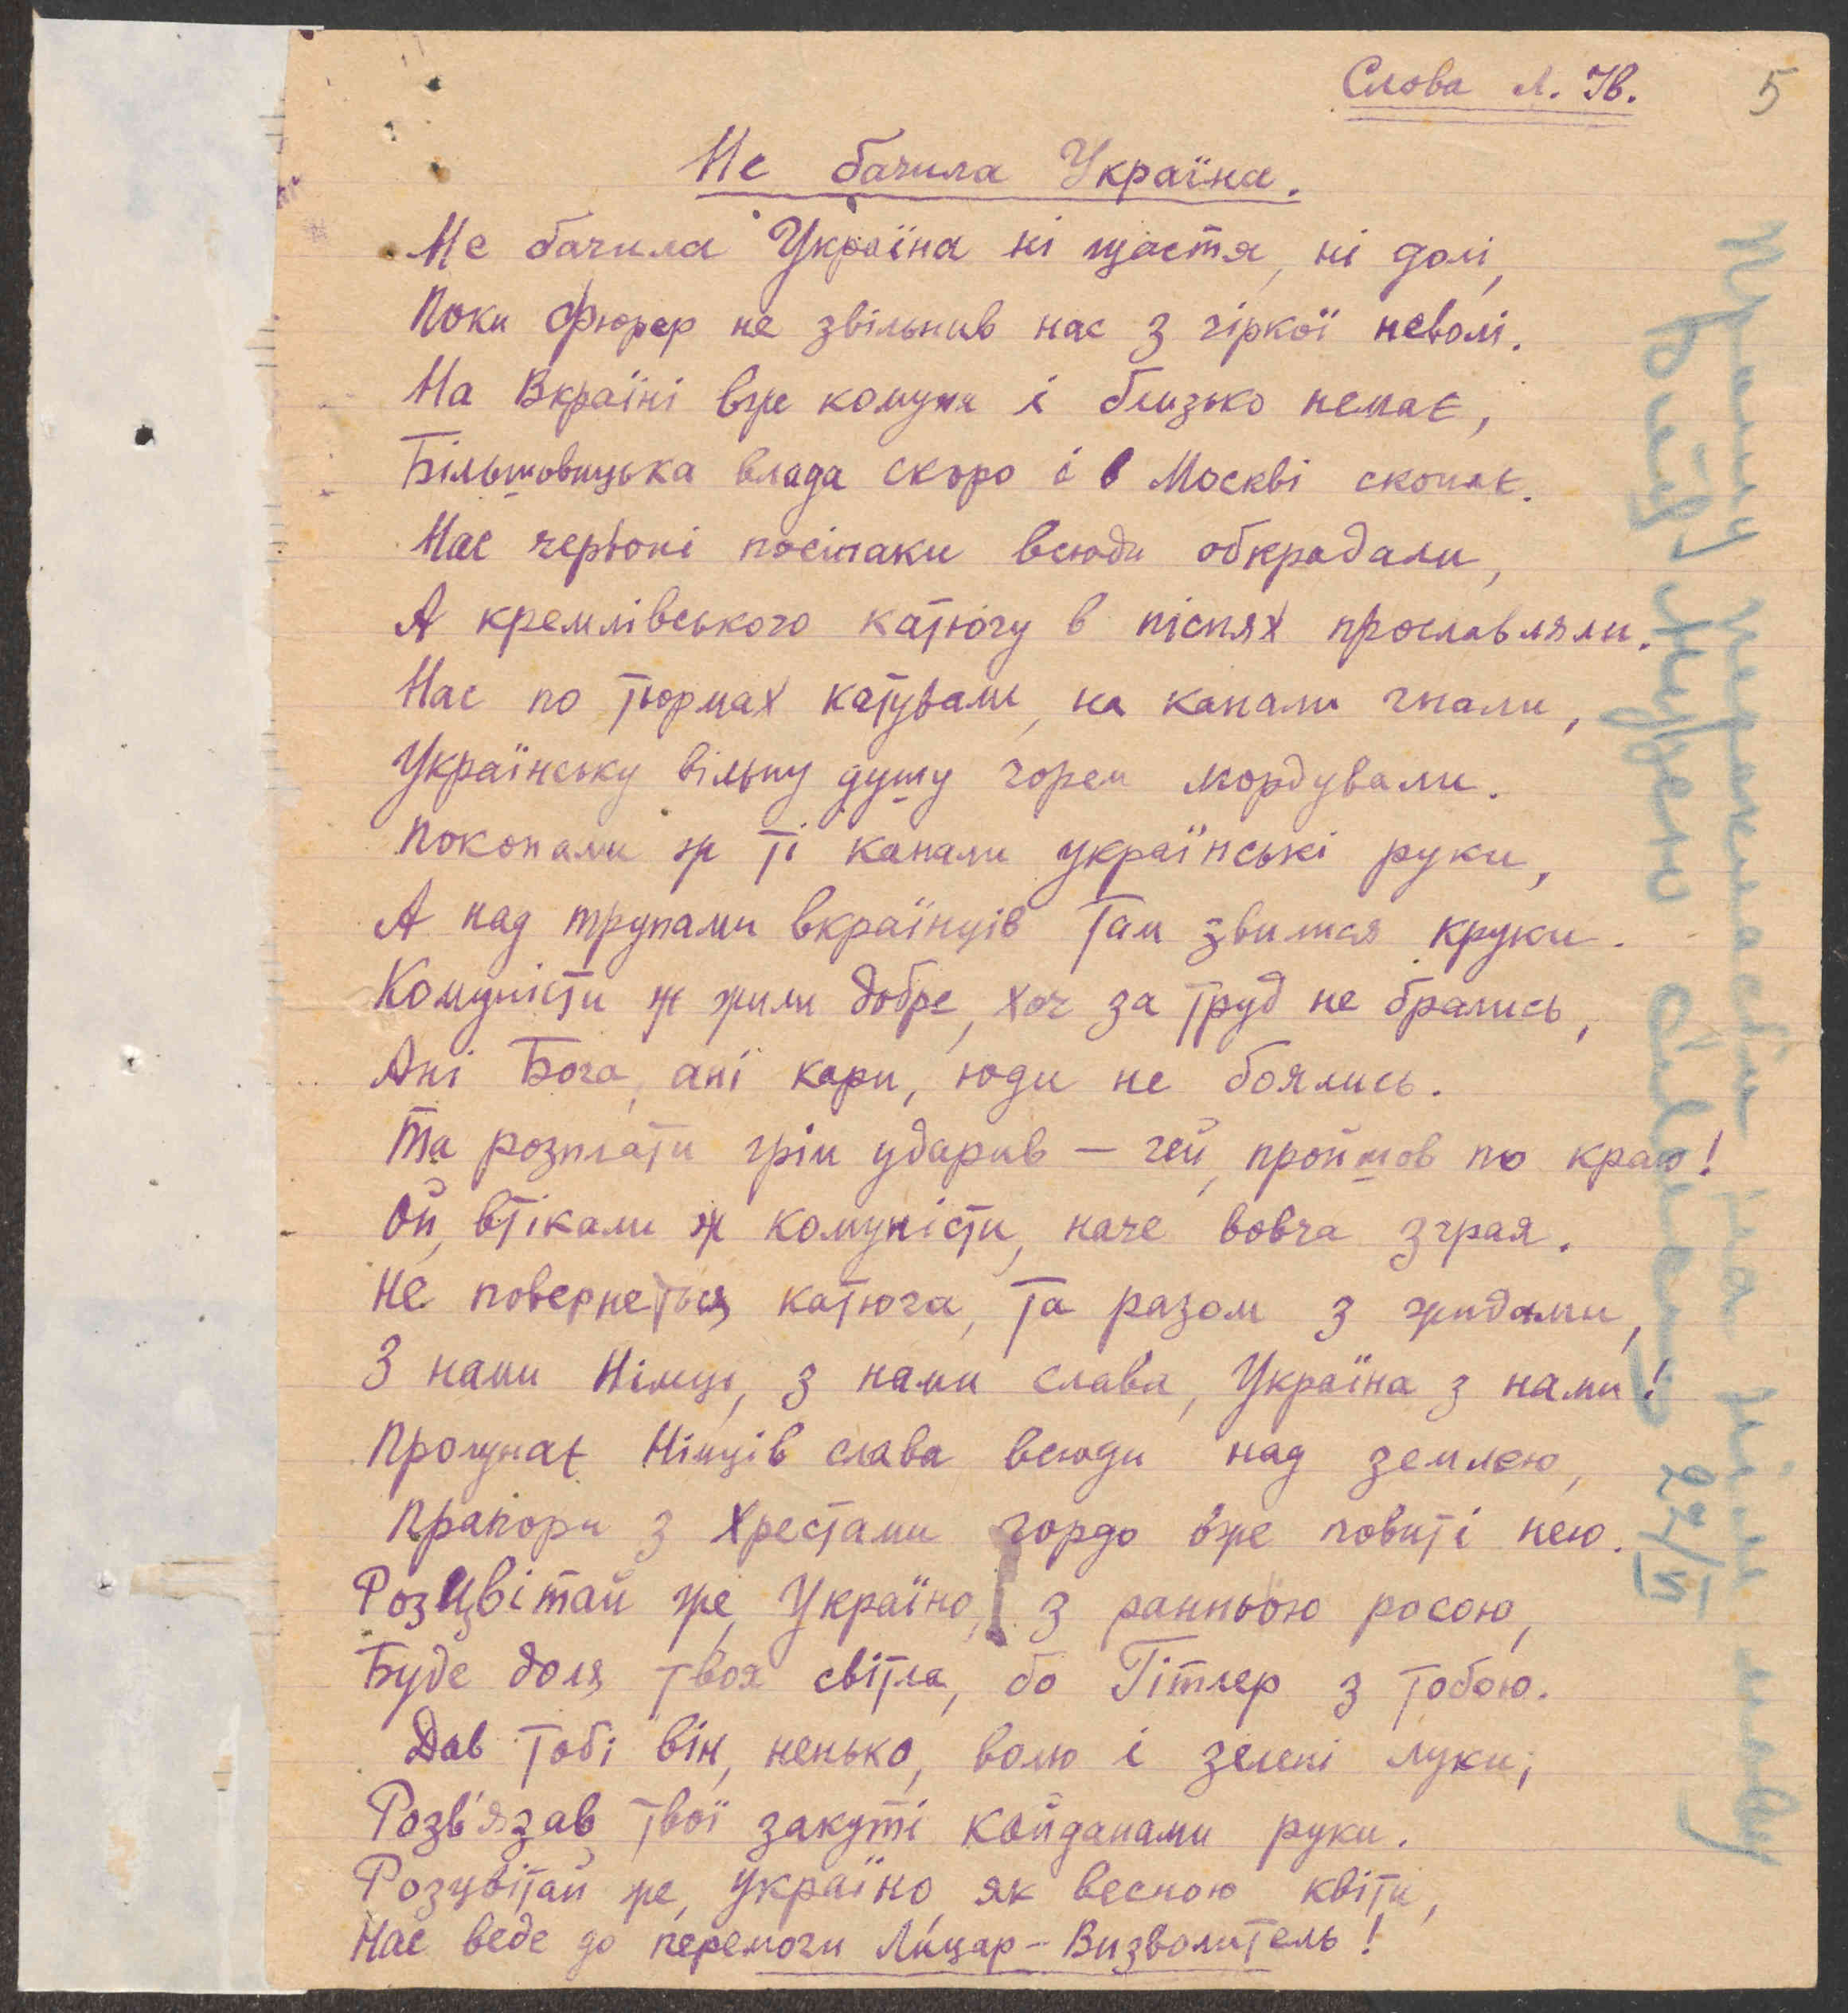 Слова Л. Ів.
5
Не бачила Україна.
Не бачила Україна ні щастя, ні долі,
Поки фюрер не звільнив нас з гіркої неволі.
На Вкраїні вже комуни і близько немає,
Більшовицька влада скоро і в Москві сконає.
Нас червоні посіпаки всюди обкрадали,
А кремлівського катюгу в піснях прославляли.
Нас по тюрмах катували, на канали гнали,
Українську вільну душу горем мордували.
Покопали ж ті канали українські руки,
А над трупами вкраїнців там звилися круки.
Комуністи ж жили добре, хоч за труд не брались,
Ані Бога, ані кари, юди не боялись.
Та розплати грім ударив – гей, пройшов по краю!
Ой, втікали ж комуністи, наче вовча зграя.
Не повернеться катюга, та разом з жидами,
З нами Німці, з нами слава, Україна з нами!
Пролунає Німців слава всюди над землею,
Прапори з хрестами гордо вже повиті нею.
Розцвітай же, Україно, з ранньою росою,
Буде доля твоя світла, бо Гітлер з тобою.
Дав тобі він, ненько, волю і зелені луки,
Розв'язав твої закуті кайданами руки.
Розцвітай же, Україно, як весною квіти,
Нас веде до перемоги Ли́цар-Визволитель!
Прошу перекласти на нім. мову
29/VI